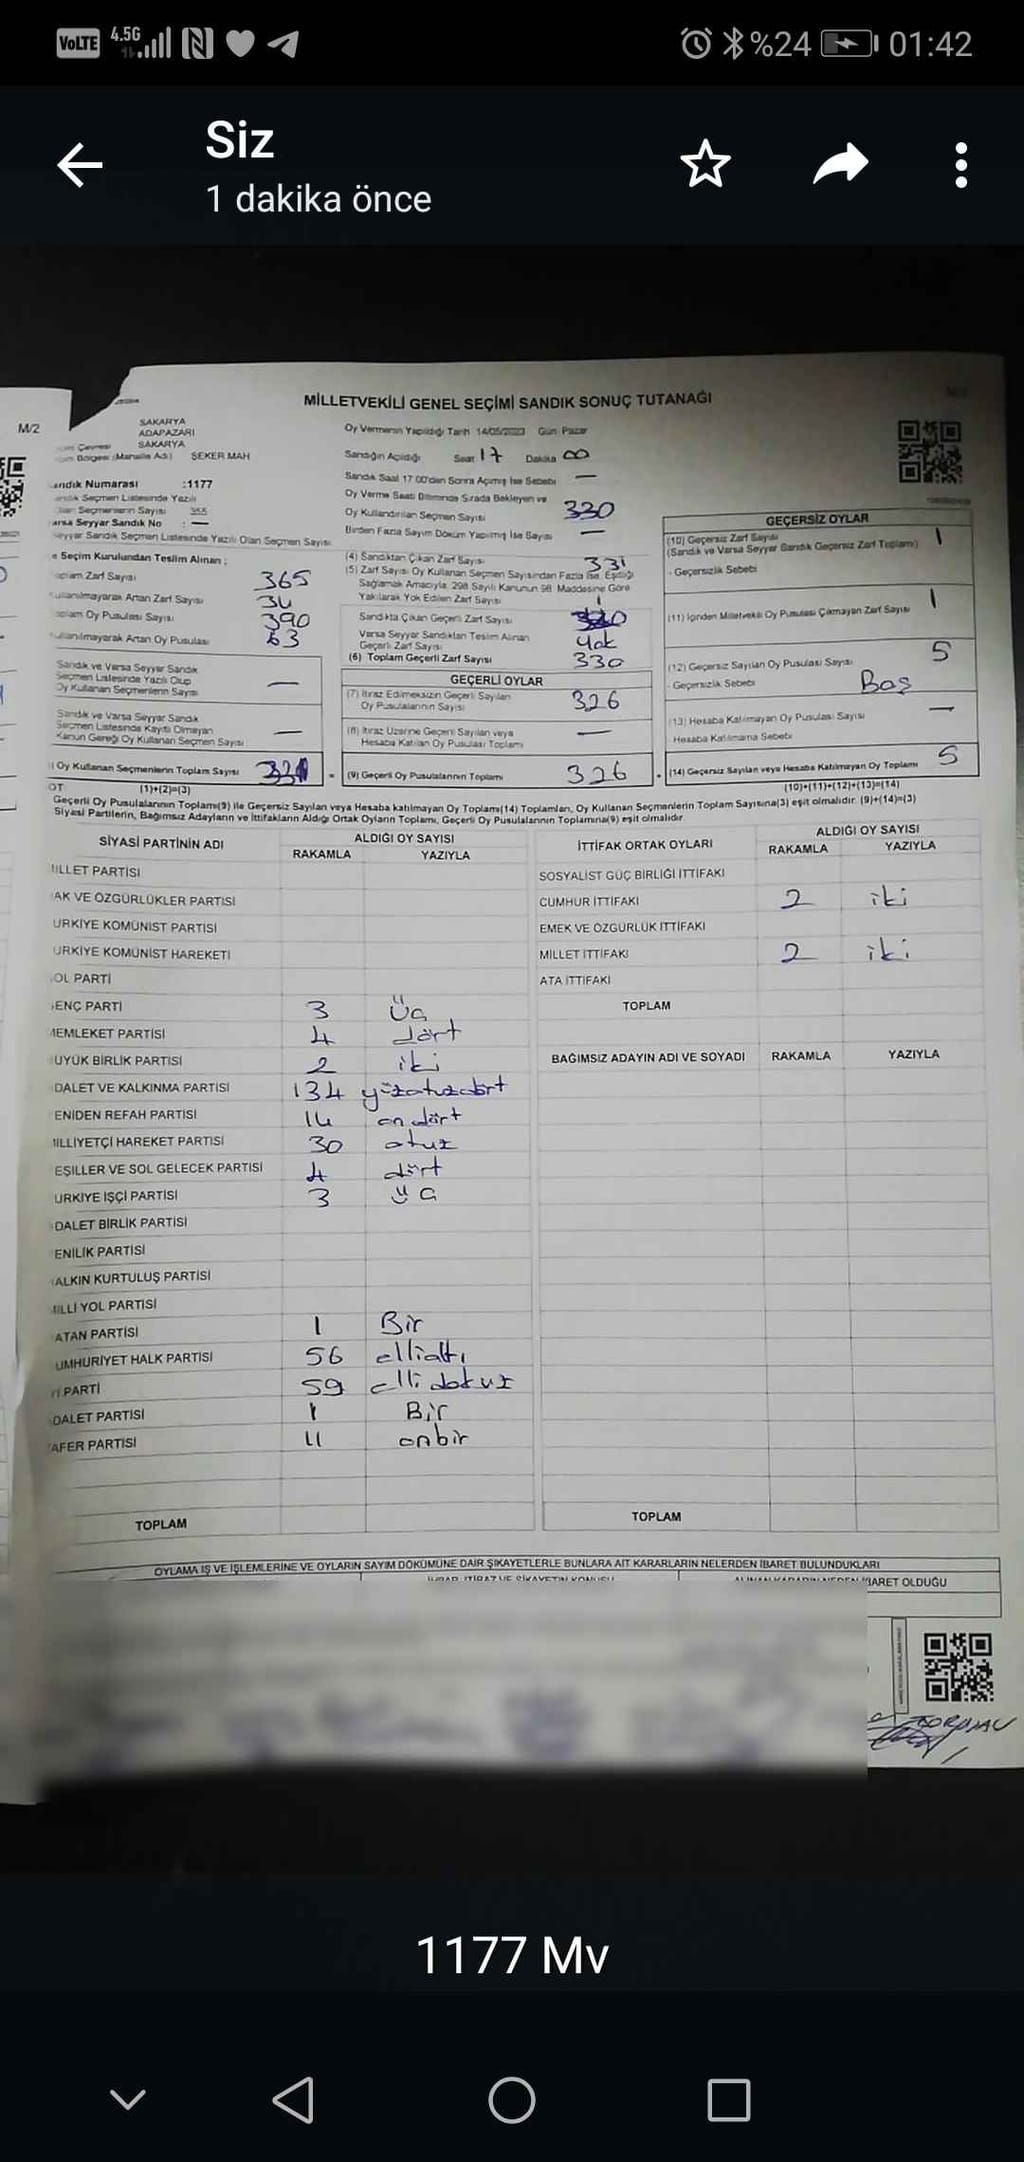 VoLTE 4.5G %24 01:42
Siz
1 dakika önce
MİLLETVEKİLİ GENEL SEÇİMİ SANDIK SONUÇ TUTANAĞI
M/2
SAKARYA
ADAPAZARI
SAKARYA
Bölgesi (Mahalle Adı) ŞEKER MAH
andık Numarası :1177
Seçmen Listesinde Yazılı
Olan Seçmenlerin Sayısı 355
arsa Seyyar Sandık No : —
eyyar Sandık Seçmen Listesinde Yazılı Olan Seçmen Sayısı
e Seçim Kurulundan Teslim Alınan ;
oplam Zarf Sayısı 365
Kullanılmayarak Artan Zarf Sayısı 34
oplam Oy Pusulası Sayısı 390
ullanılmayarak Artan Oy Pusulası 63
Sandık ve Varsa Seyyar Sandık
Seçmen Listesinde Yazılı Olup
Oy Kullanan Seçmenlerin Sayısı —
Sandık ve Varsa Seyyar Sandık
Seçmen Listesinde Kayıtlı Olmayan
Kanun Gereği Oy Kullanan Seçmen Sayısı —
Oy Kullanan Seçmenlerin Toplam Sayısı 331
(1)+(2)=(3)
Oy Vermenin Yapıldığı Tarih 14/05/2023 Gün Pazar
Sandığın Açıldığı Saat 17 Dakika 00
Sandık Saat 17:00'den Sonra Açılmış İse Sebebi —
Oy Verme Saati Bitiminde Sırada Bekleyen ve
Oy Kullandırılan Seçmen Sayısı 330
Birden Fazla Sayım Döküm Yapılmış İse Sayısı —
(4) Sandıktan Çıkan Zarf Sayısı 331
(5) Zarf Sayısı Oy Kullanan Seçmen Sayısından Fazla İse, Eşitliği
Sağlamak Amacıyla 298 Sayılı Kanunun 98. Maddesine Göre
Yakılarak Yok Edilen Zarf Sayısı 1
Sandıkta Çıkan Geçerli Zarf Sayısı
Varsa Seyyar Sandıktan Teslim Alınan
Geçerli Zarf Sayısı Yok
(6) Toplam Geçerli Zarf Sayısı 330
GEÇERLİ OYLAR
(7) İtiraz Edilmeksizin Geçerli Sayılan
Oy Pusulalarının Sayısı 326
(8) İtiraz Üzerine Geçerli Sayılan veya
Hesaba Katılan Oy Pusulası Toplamı —
(9) Geçerli Oy Pusulalarının Toplamı 326
GEÇERSİZ OYLAR
(10) Geçersiz Zarf Sayısı 1
(Sandık ve Varsa Seyyar Sandık Geçersiz Zarf Toplamı)
- Geçersizlik Sebebi
(11) İçinden Milletvekili Oy Pusulası Çıkmayan Zarf Sayısı 1
(12) Geçersiz Sayılan Oy Pusulası Sayısı 5
- Geçersizlik Sebebi Boş
(13) Hesaba Katılmayan Oy Pusulası Sayısı —
Hesaba Katılmama Sebebi
(14) Geçersiz Sayılan veya Hesaba Katılmayan Oy Toplamı 5
(10)+(11)+(12)+(13)=(14)
OT:
Geçerli Oy Pusulalarının Toplamı(9) ile Geçersiz Sayılan veya Hesaba katılmayan Oy Toplamı(14) Toplamları, Oy Kullanan Seçmenlerin Toplam Sayısına(3) eşit olmalıdır. (9)+(14)=(3)
Siyasi Partilerin, Bağımsız Adayların ve İttifakların Aldığı Ortak Oyların Toplamı, Geçerli Oy Pusulalarının Toplamına(9) eşit olmalıdır.
SİYASİ PARTİNİN ADI ALDIĞI OY SAYISI
RAKAMLA YAZIYLA
İLLET PARTİSİ
AK VE ÖZGÜRLÜKLER PARTİSİ
ÜRKİYE KOMÜNİST PARTİSİ
ÜRKİYE KOMÜNİST HAREKETİ
OL PARTİ
ENÇ PARTİ 3 üç
MEMLEKET PARTİSİ 4 dört
ÜYÜK BİRLİK PARTİSİ 2 iki
DALET VE KALKINMA PARTİSİ 134 yüzotuzdört
ENİDEN REFAH PARTİSİ 14 on dört
İLLİYETÇİ HAREKET PARTİSİ 30 otuz
EŞİLLER VE SOL GELECEK PARTİSİ 4 dört
ÜRKİYE İŞÇİ PARTİSİ 3 üç
DALET BİRLİK PARTİSİ
ENİLİK PARTİSİ
ALKIN KURTULUŞ PARTİSİ
İLLİ YOL PARTİSİ
ATAN PARTİSİ 1 Bir
UMHURİYET HALK PARTİSİ 56 ellialtı
İ PARTİ 59 elli dokuz
DALET PARTİSİ 1 Bir
AFER PARTİSİ 11 onbir
TOPLAM
İTTİFAK ORTAK OYLARI ALDIĞI OY SAYISI
RAKAMLA YAZIYLA
SOSYALİST GÜÇ BİRLİĞİ İTTİFAKI
CUMHUR İTTİFAKI 2 iki
EMEK VE ÖZGÜRLÜK İTTİFAKI
MİLLET İTTİFAKI 2 iki
ATA İTTİFAKI
TOPLAM
BAĞIMSIZ ADAYIN ADI VE SOYADI RAKAMLA YAZIYLA
TOPLAM
OYLAMA İŞ VE İŞLEMLERİNE VE OYLARIN SAYIM DÖKÜMÜNE DAİR ŞİKAYETLERLE BUNLARA AİT KARARLARIN NELERDEN İBARET BULUNDUKLARI
İHBAR, İTİRAZ VE ŞİKAYETİN KONUSU ALINAN KARARIN NEDEN İBARET OLDUĞU
1177 Mv